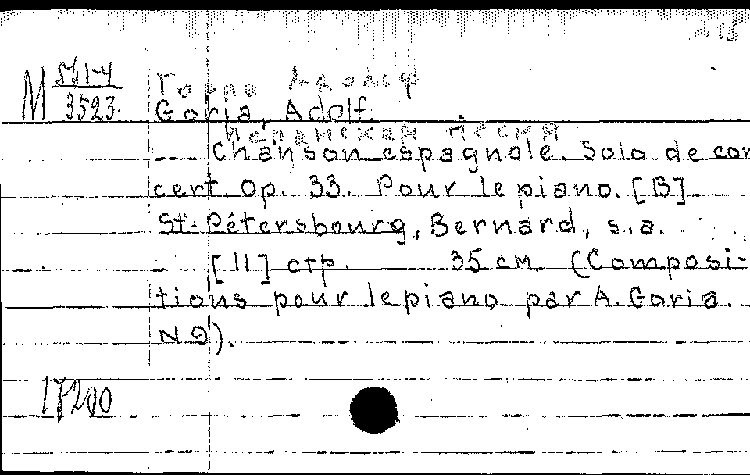 М 511-4
3523.
Гориа Адольф
Goria, Adolf.
Испанская песня
... Chanson espagnole. Solo de con
cert Op. 33. Pour le piano. [B]
St-Pétersbourg, Bernard, s.a.
[11] стр. 35 см (Composi-
tions pour le piano par A. Goria.
N 9).
17200